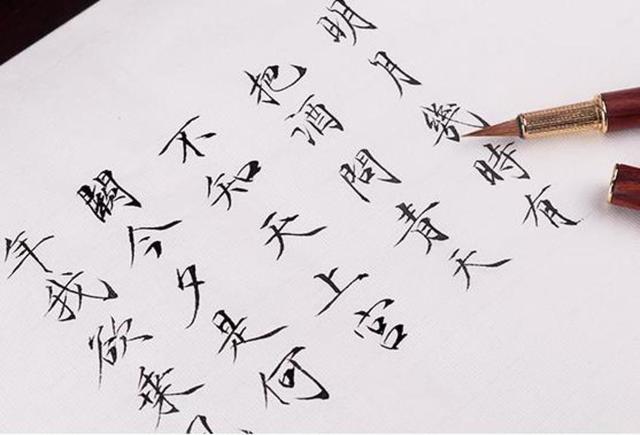 明月幾時有
把酒問青天
不知天上宮
闕今夕是何
年我欲乘